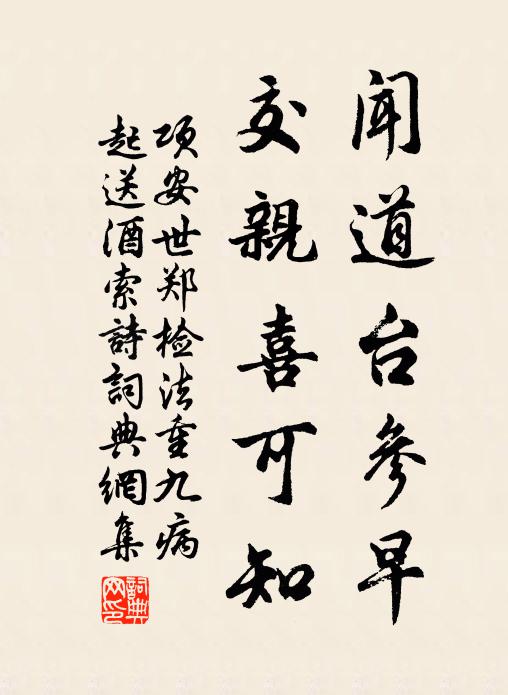 闻道台參早
交親喜可知
项安世郑检法重九病
起送酒索詩詞典網集
詞典网印